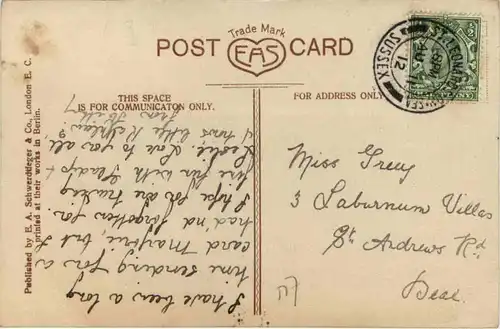 Trade Mark
POST CARD
EAS
THIS SPACE
IS FOR COMMUNICATON ONLY.
FOR ADDRESS ONLY.
Published by E. A. Schwerdtfeger & Co., London E. C.
Printed at their works in Berlin.
ST LEONARDS-ON-SEA
SUSSEX
12
I have been a long
time sending for a
card Marjorie, but I
had'nd forgotten you.
I hope you are having
fine fun with Gladys &
Leslie. Love to you all,
Miss Grey
3 Laburnum Villas
St Andrews Rd
Deal